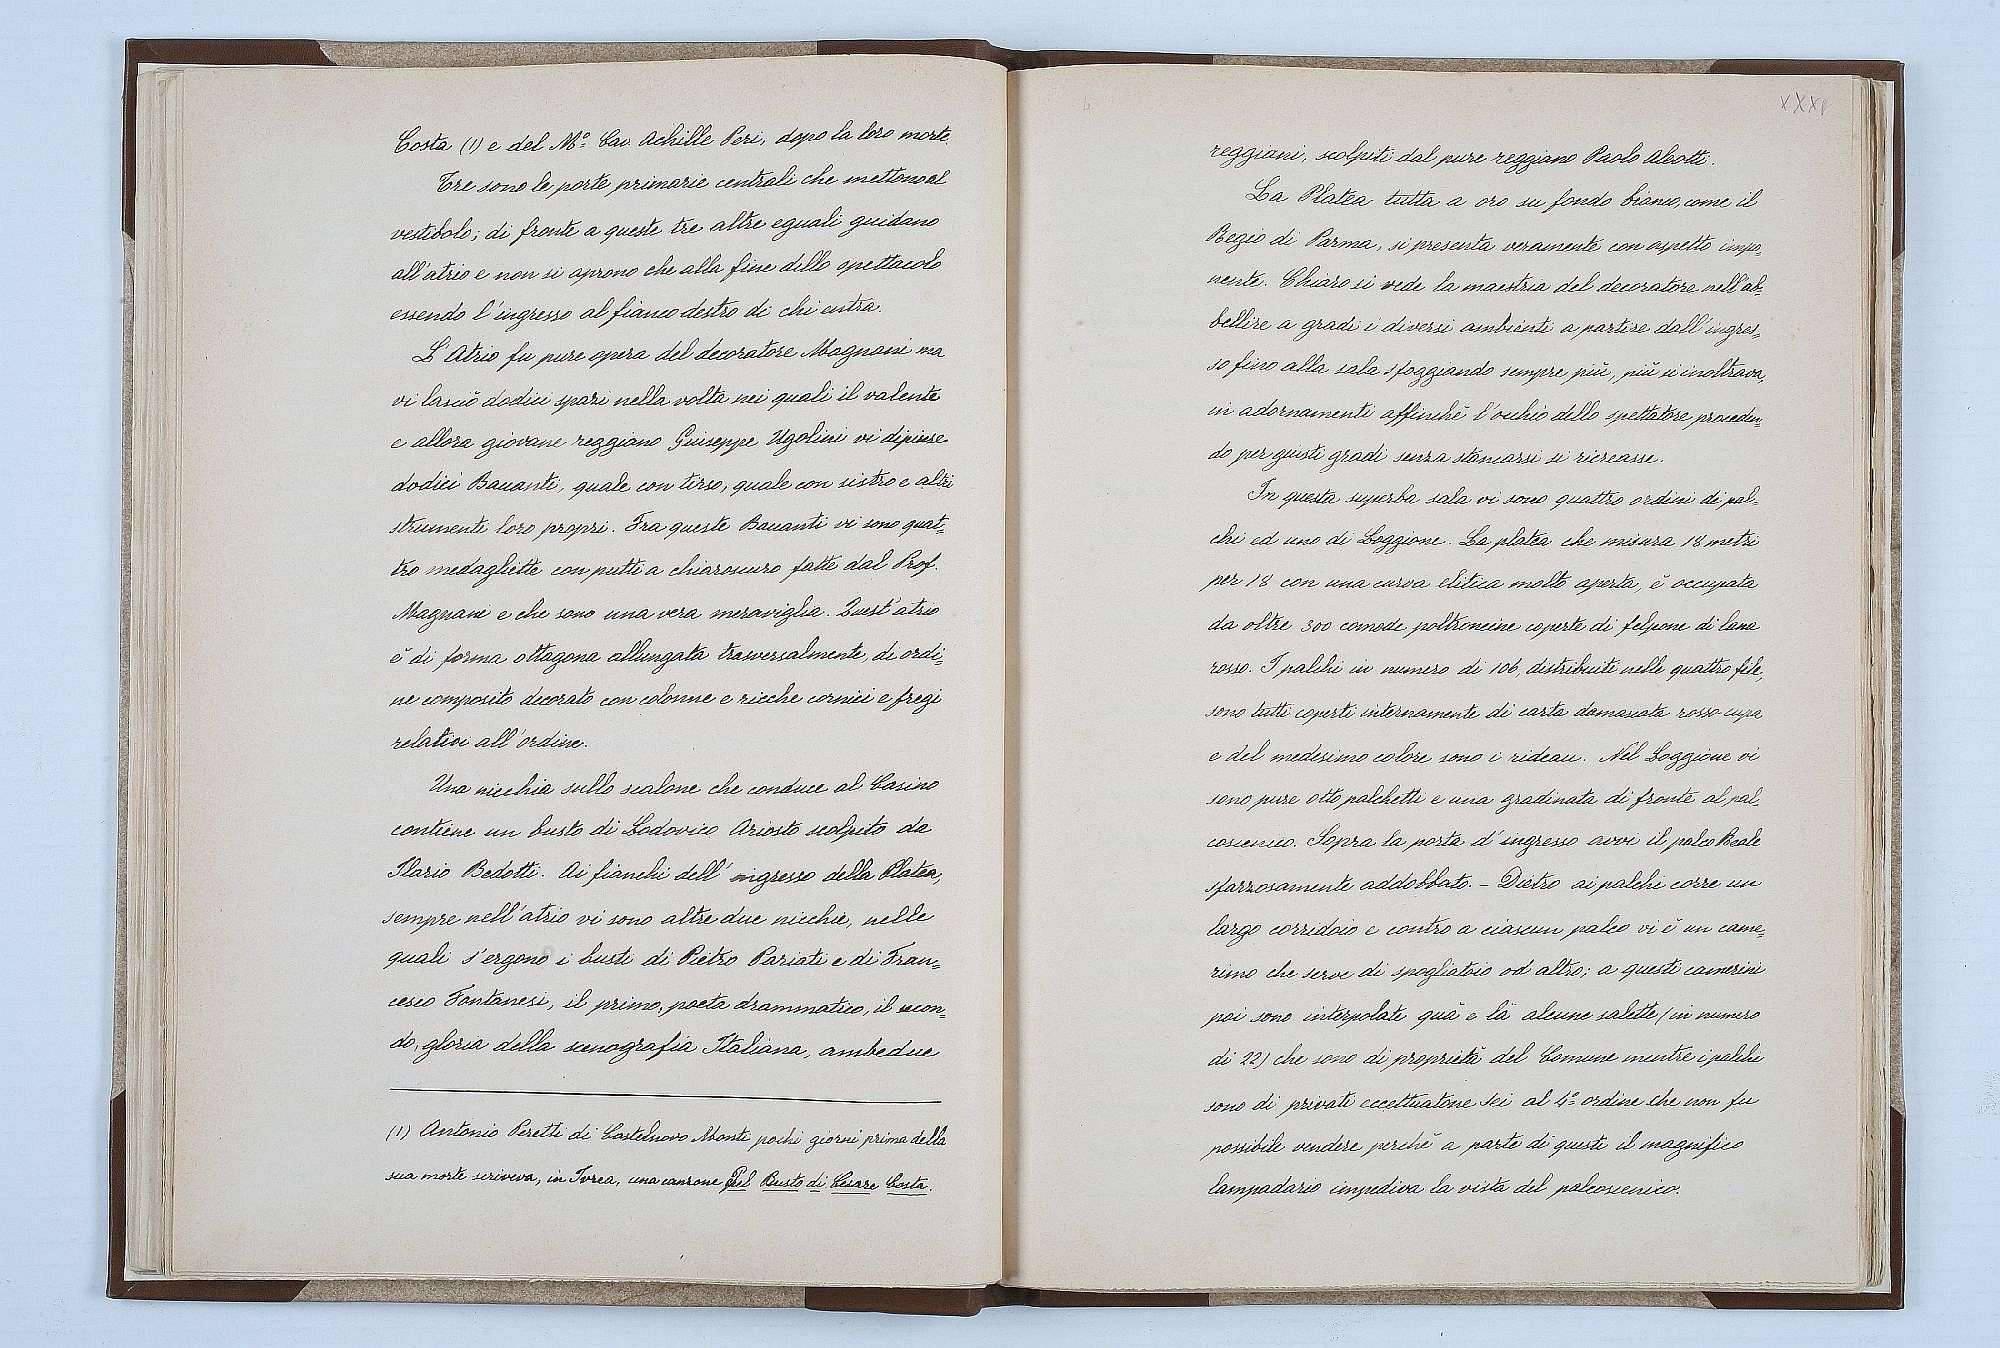 Costa (1) e del M.° Cav. Achille Peri, dopo la loro morte.
Tre sono le porte primarie centrali che mettono al
vestibolo; di fronte a queste tre altre eguali guidano
all'atrio e non si aprono che alla fine dello spettacolo
essendo l'ingresso al fianco destro di chi entra.
L'Atrio fu pure opera del decoratore Magnani ma
vi lasciò dodici spazi nella volta nei quali il valente
e allora giovane reggiano Giuseppe Ugolini vi dipinse
dodici Baccanti, quale con tirso, quale con sistro e altri
strumenti loro propri. Fra queste Baccanti vi sono quat=
tro medagliette con putti a chiaroscuro fatte dal Prof.
Magnani e che sono una vera meraviglia. Quest'atrio
è di forma ottagona allungata trasversalmente, di ordi=
ne composito decorato con colonne e ricche cornici e fregi
relativi all'ordine.
Una nicchia sullo scalone che conduce al Casino
contiene un busto di Lodovico Ariosto scolpito da
Ilario Bedotti. Ai fianchi dell'ingresso della Platea,
sempre nell'atrio vi sono altre due nicchie, nelle
quali s'ergono i busti di Pietro Pariati e di Fran=
cesco Fontanesi, il primo, poeta drammatico, il secon=
do, gloria della scenografia Italiana, ambedue
(1) Antonio Peretti di Castelnovo Monti pochi giorni prima della
sua morte scriveva, in Ivrea, una canzone Pel Busto di Cesare Costa.
XXXI
reggiani, scolpiti dal pure reggiano Paolo Aleotti.
La Platea tutta a oro su fondo bianco, come il
Regio di Parma, si presenta veramente con aspetto impo=
nente. Chiaro si vede la maestria del decoratore nell'ab=
bellire a gradi i diversi ambienti a partire dall'ingres=
so fino alla sala sfoggiando sempre più, più si inoltrava,
in adornamenti affinchè l'occhio dello spettatore proceden=
do per giusti gradi senza stancarsi si ricreasse.
In questa superba sala vi sono quattro ordini di pal=
chi ed uno di Loggione. La platea che misura 18 metri
per 18 con una curva elitica molto aperta, è occupata
da oltre 300 comode poltroncine coperte di felpone di lana
rosso. I palchi in numero di 106, distribuiti nelle quattro file,
sono tutti coperti internamente di carta damascata rosso cupa
e del medesimo colore sono i rideau. Nel Loggione vi
sono pure otto palchetti e una gradinata di fronte al pal=
coscenico. Sopra la porta d'ingresso avvi il palco Reale
sfarzosamente addobbato. – Dietro ai palchi corre un
largo corridoio e contro a ciascun palco vi è un came=
rino che serve di spogliatoio od altro; a questi camerini
poi sono interpolate quà e là alcune salette (in numero
di 22) che sono di proprietà del Comune mentre i palchi
sono di privati eccettuatone sei al 4° ordine che non fu
possibile vendere perchè a parte di questi il magnifico
lampadario impediva la vista del palcoscenico.